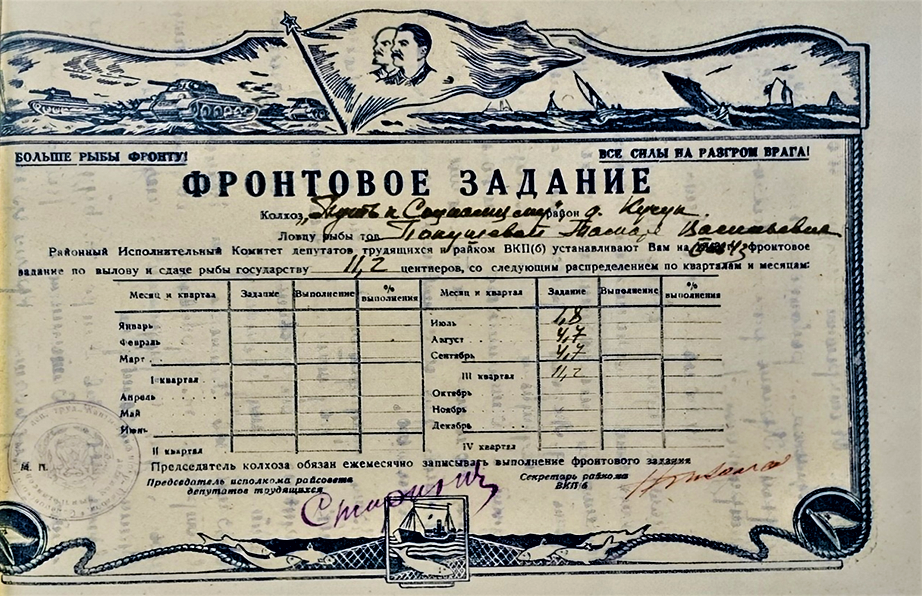 БОЛЬШЕ РЫБЫ ФРОНТУ!
ВСЕ СИЛЫ НА РАЗГРОМ ВРАГА!
ФРОНТОВОЕ ЗАДАНИЕ
Колхоз „Путь к Социализму" район д. Кучук
Ловцу рыбы тов. Васильевне
Районный Исполнительный Комитет депутатов трудящихся и райком ВКП(б) устанавливают Вам на фронтовое
задание по вылову и сдаче рыбы государству 11,2 центнеров, со следующим распределением по кварталам и месяцам:
Месяц и квартал Задание Выполнение % выполнения Месяц и квартал Задание Выполнение % выполнения
Январь Июль 1,8
Февраль Август 4,7
Март Сентябрь 4,7
I квартал III квартал 11,2
Апрель Октябрь
Май Ноябрь
Июнь Декабрь
II квартал IV квартал
М. П.
Председатель колхоза обязан ежемесячно записывать выполнение фронтового задания
Председатель исполкома райсовета
депутатов трудящихся
Секретарь райкома
ВКП б